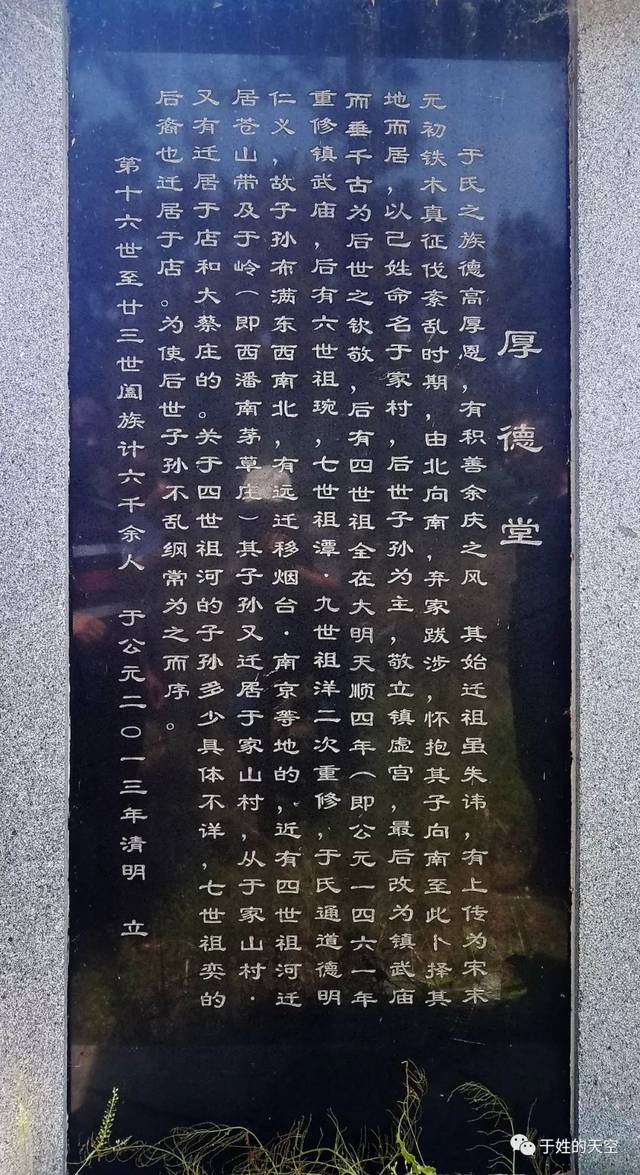 厚德堂
于氏之族德高厚恩，有积善余庆之风 其始迁祖虽失讳，有上传为宋末
元初铁木真征伐紊乱时期，由北向南，弃家跋涉，怀抱其子向南至此卜择其
地而居，以己姓命名于家村，后世子孙为主，敬立镇虚宫，最后改为镇武庙
而垂千古为后世之钦敬，后有四世祖全在大明天顺四年（即公元一四六一年
重修镇武庙，后有六世祖琬，七世祖潭·九世祖洋二次重修，于氏通道德明
仁义，故子孙布满东西南北，有远迁移烟台·南京等地的，近有四世祖河迁
居苍山带及于岭（即西潘南茅草庄）其子孙又迁居于家山村，从于家山村·
又有迁居于店和大蔡庄的。关于四世祖河的子孙多少具体不详，七世祖奕的
后裔也迁居于店。为使后世子孙不乱纲常为之而序。
第十六世至廿三世阖族计六千余人 于公元二〇一三年清明 立
于姓的天空